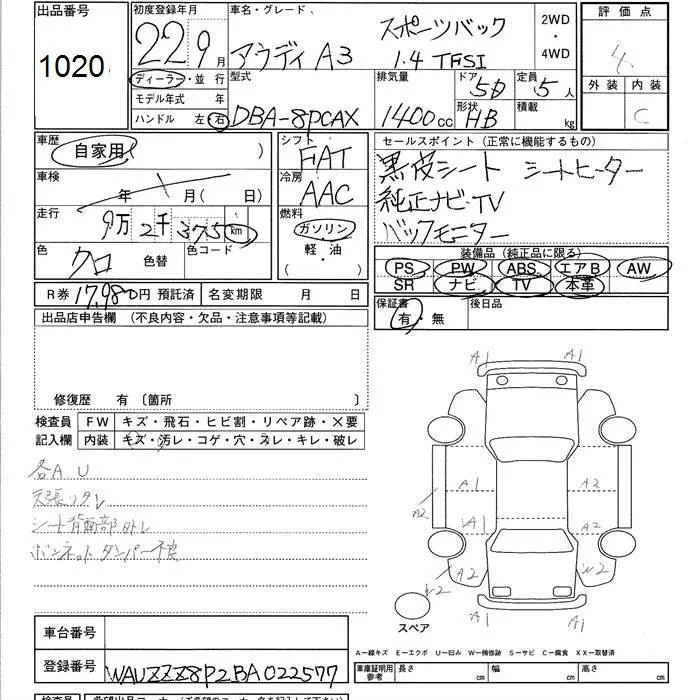 出品番号
1020
初度登録年月
22 9月
ディーラー・並行
モデル年式 年
ハンドル 左 右
車名・グレード
スポーツバック
アウディ A3 1.4 TFSI
2WD
・
4WD
型式
DBA-8PCAX
排気量
1400cc
ドア 5D
形状 HB
定員 5人
積載 kg
評価点
4
外装 内装
C
車歴
自家用 )
車検
年 月( 日)
走行
9万2千375 km
色
クロ 色替
色コード
シフト
FAT
冷房
AAC
燃料
ガソリン
・
軽・油
( )
セールスポイント (正常に機能するもの)
黒皮シート シートヒーター
純正ナビ・TV
バックモニター
装備品 (純正品に限る)
PS PW ABS エアB AW
SR ナビ TV 本革
R券 17,980円 預託済 名変期限 月 日
保証書
有・無
後日品
出品店申告欄 (不良内容・欠品・注意事項等記載)
修復歴 有 〔箇所 〕
検査員
記入欄
FW キズ・飛石・ヒビ割・リペア跡・X要
内装 キズ・汚レ・コゲ・穴・スレ・キレ・破レ
各A U
天張リタレ
シート背面部外レ
ボンネットダンパー不良
A1 A1
A1 A2
A2
A1 A2
A2 W2
W2
A1 A1
スペア
A－線キズ E－エクボ U－凹み W－補修跡 S－サビ C－腐食 XX－取替済
車台番号
登録番号
WAUZZZ8P2BA022577
車庫証明用
参考
長さ 幅 高さ
cm cm cm